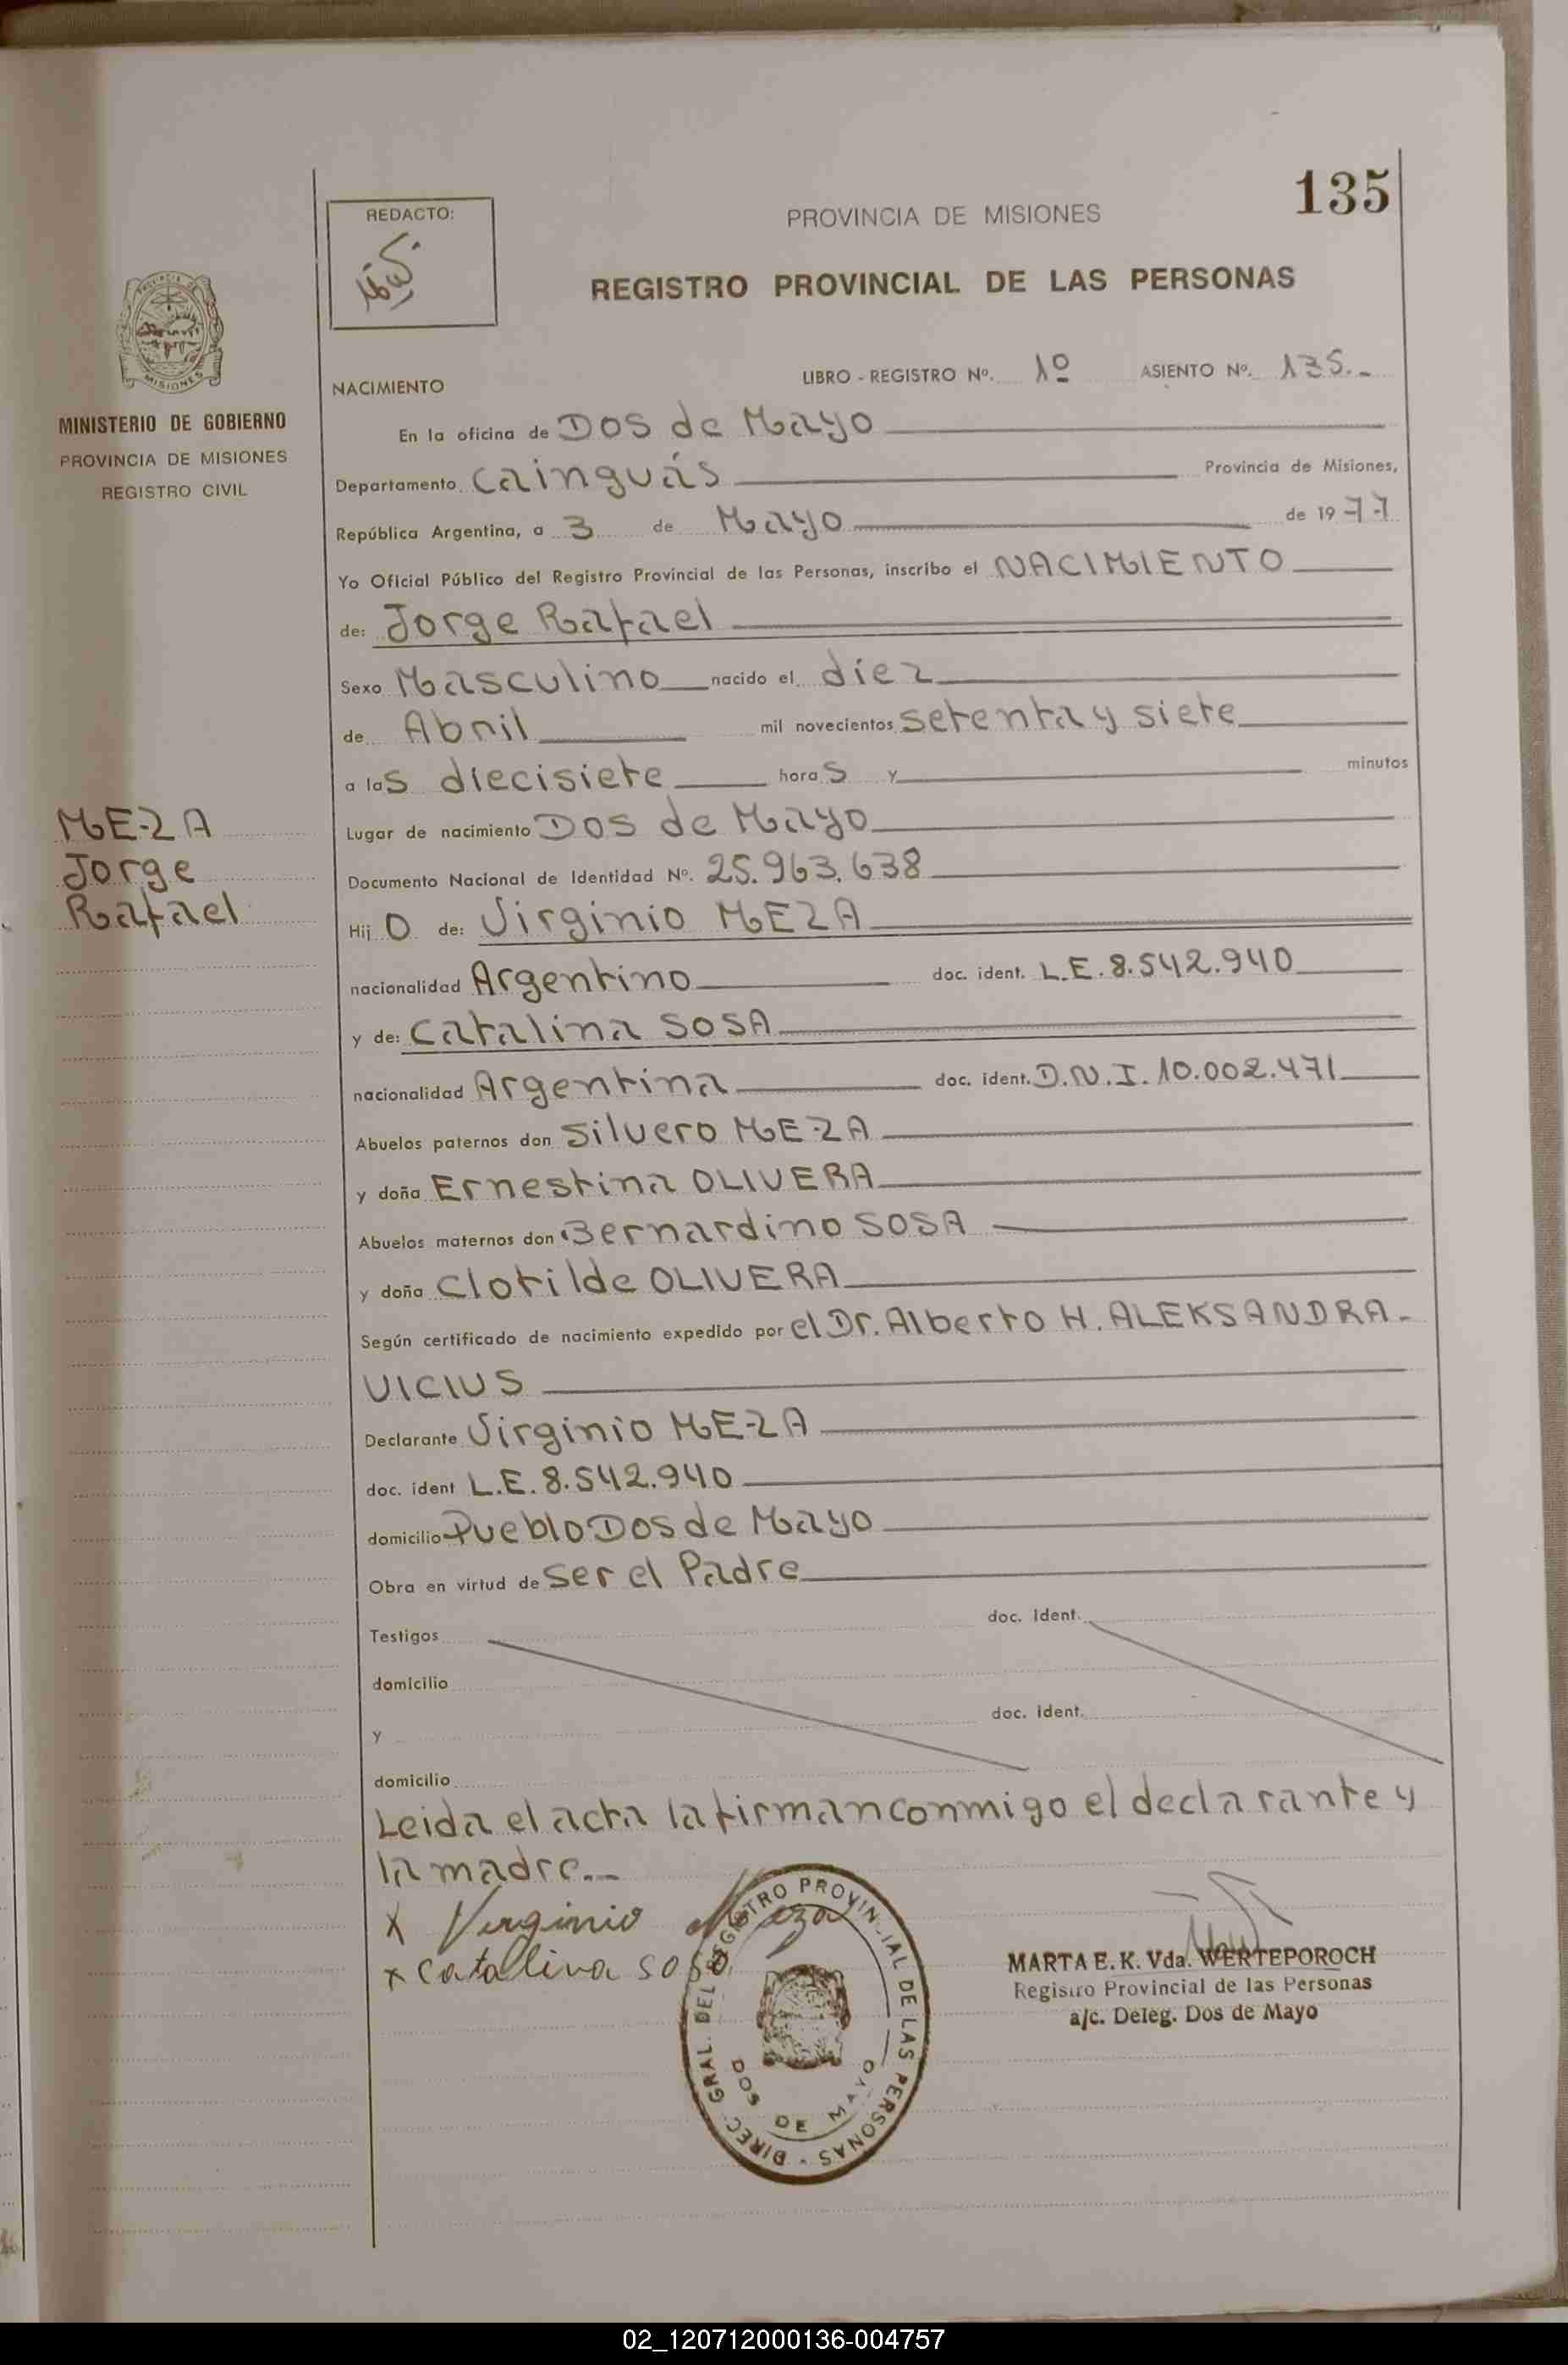 135
REDACTO:
PROVINCIA DE MISIONES
REGISTRO PROVINCIAL DE LAS PERSONAS
MISIONES
MINISTERIO DE GOBIERNO
PROVINCIA DE MISIONES
REGISTRO CIVIL
NACIMIENTO LIBRO - REGISTRO Nº. 1º ASIENTO Nº. 135.-
En la oficina de Dos de Mayo
Departamento Cainguás Provincia de Misiones,
República Argentina, a 3 de Mayo de 1977
Yo Oficial Público del Registro Provincial de las Personas, inscribo el NACIMIENTO
de: Jorge Rafael
Sexo Masculino nacido el diez
de Abril mil novecientos setenta y siete
a las diecisiete horas y minutos
MEZA
Jorge
Rafael
Lugar de nacimiento Dos de Mayo
Documento Nacional de Identidad Nº. 25.963.638
Hijo de: Virginio MEZA
nacionalidad Argentino doc. ident. L.E. 8.542.940
y de: Catalina SOSA
nacionalidad Argentina doc. ident. D.N.I. 10.002.471
Abuelos paternos don Silvero MEZA
y doña Ernestina OLIVERA
Abuelos maternos don Bernardino SOSA
y doña Clotilde OLIVERA
Según certificado de nacimiento expedido por el Dr. Alberto H. ALEKSANDRA-
VICIUS
Declarante Virginio MEZA
doc. ident L.E. 8.542.940
domicilio Pueblo Dos de Mayo
Obra en virtud de ser el Padre
Testigos doc. ident.
domicilio
y doc. ident.
domicilio
Leida el acta la firman conmigo el declarante y
la madre.-
x Virginio Meza
x Catalina sosa
DIREC. GRAL. DEL REGISTRO PROVINCIAL DE LAS PERSONAS -
DOS DE MAYO
MARTA E. K. Vda. WERTEPOROCH
Registro Provincial de las Personas
a/c. Deleg. Dos de Mayo
02_120712000136-004757